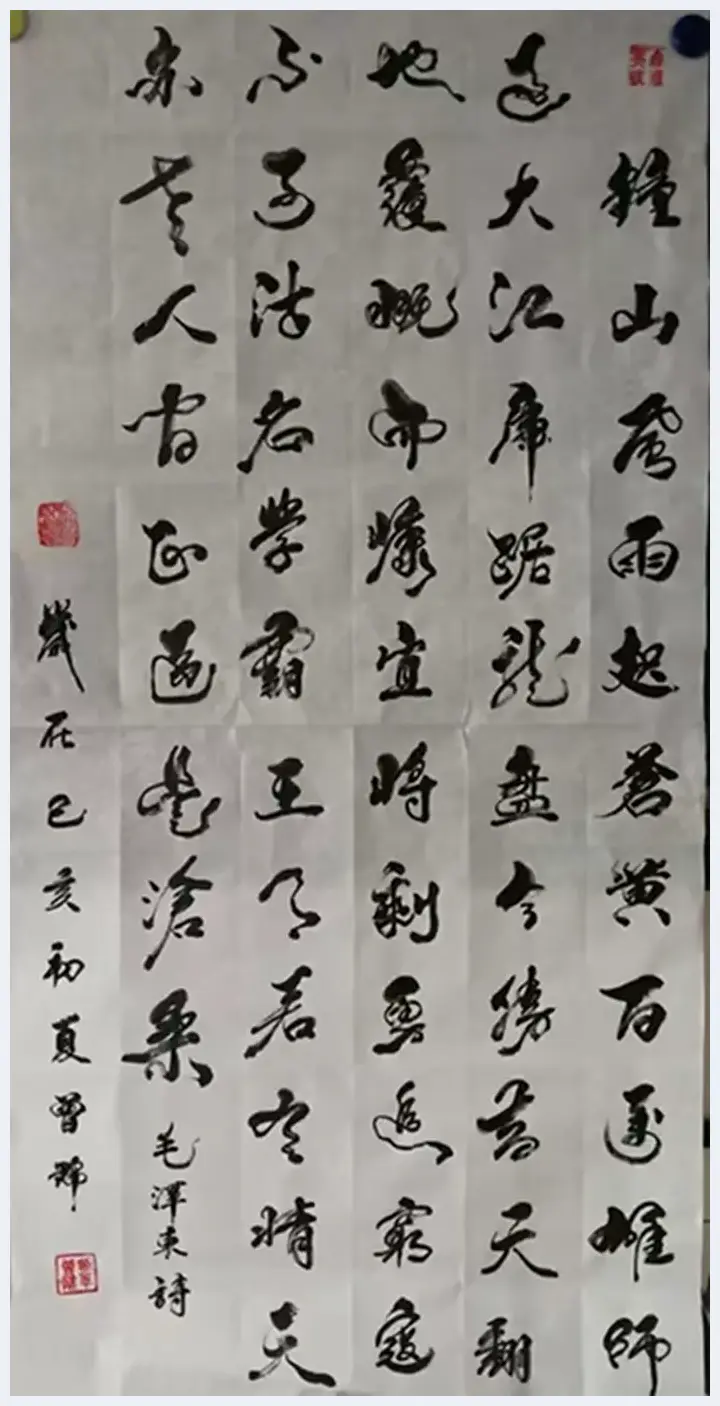 鍾山風雨起蒼黃百萬雄師
過大江虎踞龍盤今勝昔天翻
地覆慨而慷宜將剩勇追窮寇
不可沽名學霸王天若有情天
亦老人間正道是滄桑
毛澤東詩
歲在己亥初夏曾